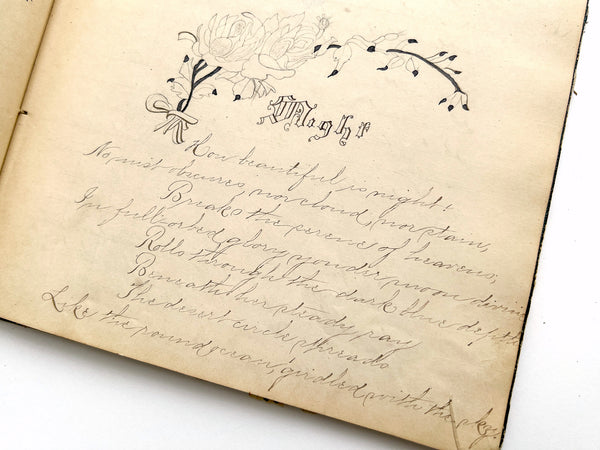 Night
How beautiful is night!
No mist obscures, nor cloud, nor stain,
Breaks the serene of heavens;
In full orbed glory yonder moon divine
Rolls through the dark blue depths
Beneath her steady ray
The desert circle threads
Like the round ocean girdled with the sky.